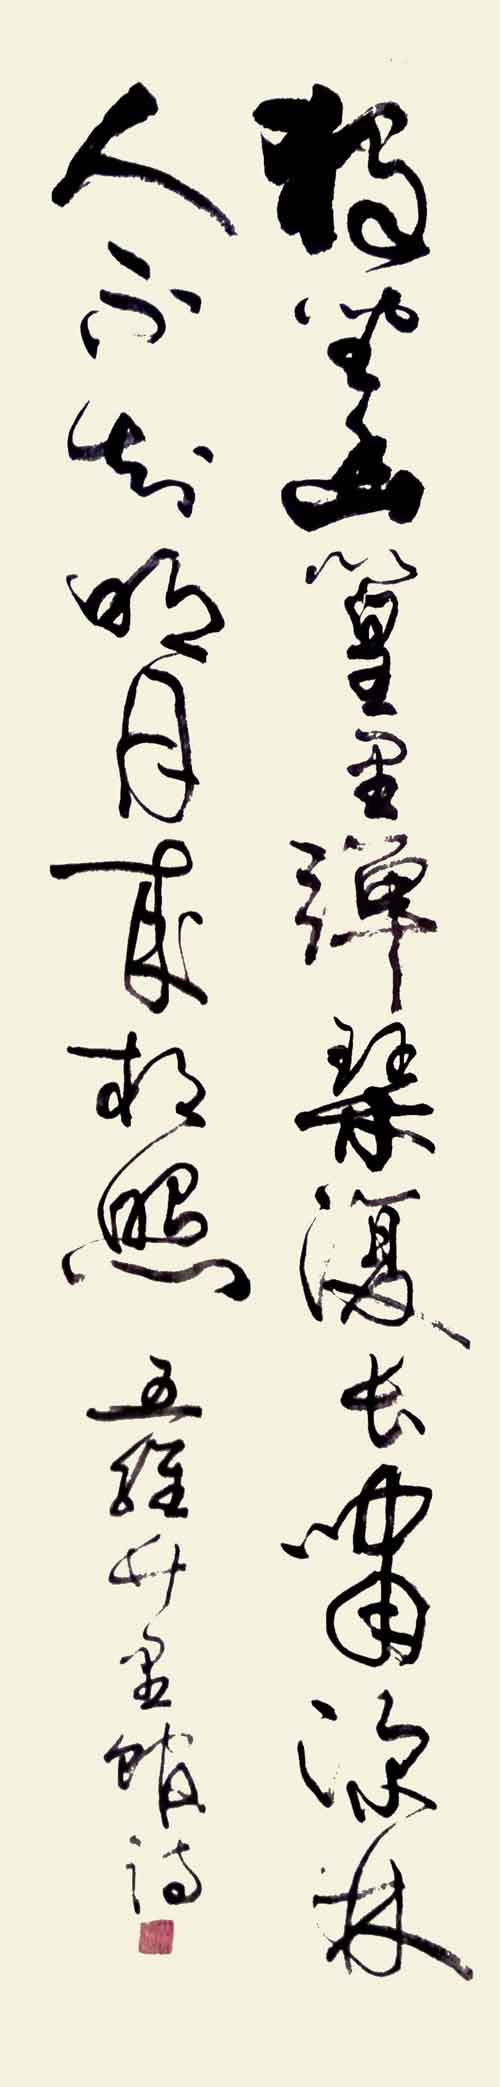 独坐幽篁里彈琴復长啸深林
人不知明月来相照 王維竹里館诗